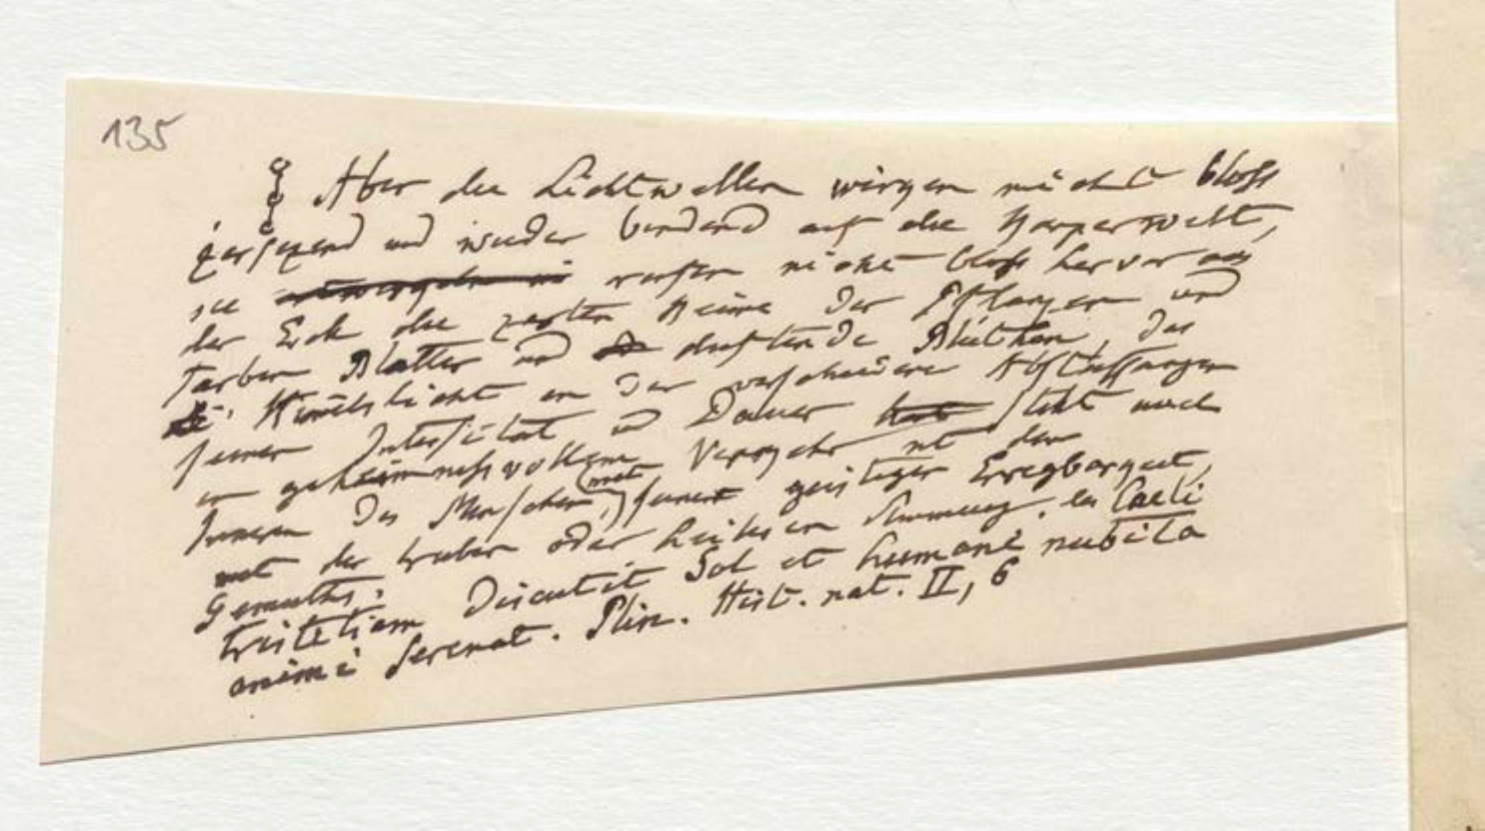 135
Aber die Lichtwellen wirken nicht bloss
zersezend und wieder bindend auf die Körperwelt,
sie rufen nicht bloss hervor aus
der Erde die zarten Keime der Pflanzen und
färben Blätter und duftende Blüthen, das
Himelslicht in der verschiedenen Abstuffungen
seiner Intensität und Dauer steht auch
in geheimnissvollem Verkehr mit dem
Inneren des Menschen, mit seiner geistigen Erregbarkeit,
mit der truben oder heiteren Stimmung des
Gemuths. Caeli
tristitiam Discutit Sol et humani nubila
animi serenat. Plin. Hist. nat. II, 6